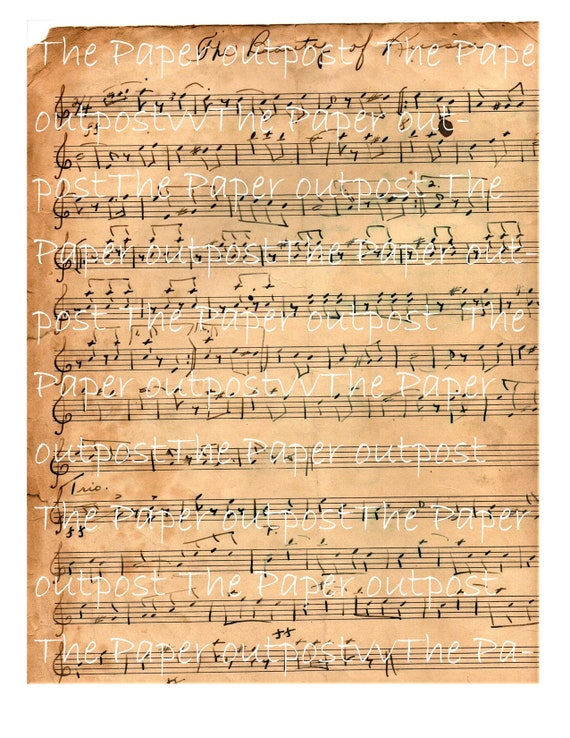 The Beauty of
The Paper outpost The Pape
ff
outpostVVThe Paper out-
postThe Paper outpost The
2.
Paper outpostThe Paper out-
post The Paper outpost The
Paper outpostVVThe Paper
outpostThe Paper outpost
Trio.
The Paper outpostThe Paper
ff
outpost The Paper outpost
ff
The Paper outpostVVThe Pa-